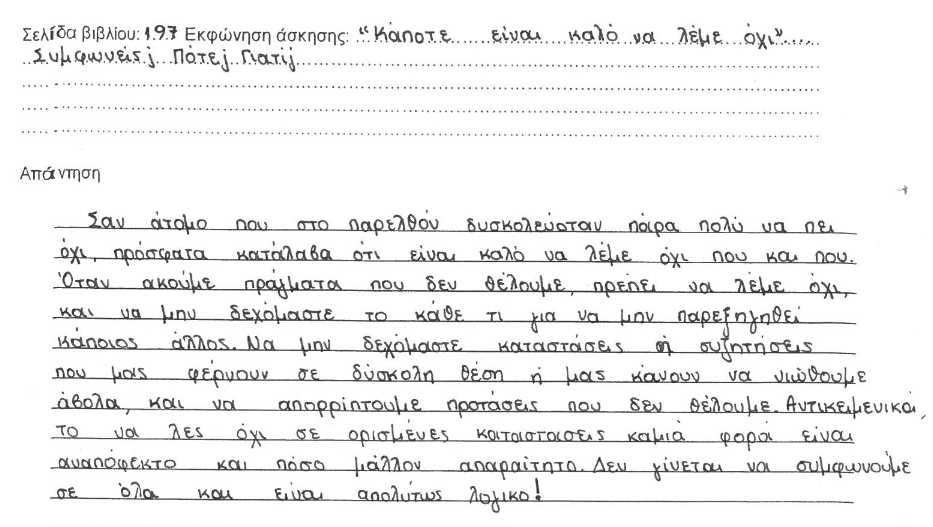 Σελίδα βιβλίου: 197 Εκφώνηση άσκησης: "Κάποτε είναι καλό να λέμε όχι"
Συμφωνείς; Πότε; Γιατί;
Απάντηση
Σαν άτομο που στο παρελθόν δυσκολεύοταν πάρα πολύ να πει
όχι, πρόσφατα κατάλαβα ότι είναι καλό να λέμε όχι που και που.
Όταν ακούμε πράγματα που δεν θέλουμε, πρέπει να λέμε όχι,
και να μην δεχόμαστε το κάθε τι για να μην παρεξηγηθεί
κάποιος άλλος. Να μην δεχόμαστε καταστάσεις ή συζητήσεις
που μας φέρνουν σε δύσκολη θέση ή μας κάνουν να νιώθουμε
άβολα, και να απορρίπτουμε προτάσεις που δεν θέλουμε. Αντικειμενικά,
το να λες όχι σε ορισμένες καταστάσεις καμιά φορά είναι
αναπόφεκτο και πόσο μάλλον απαραίτητο. Δεν γίνεται να συμφωνούμε
σε όλα και είναι απολύτως λογικο!